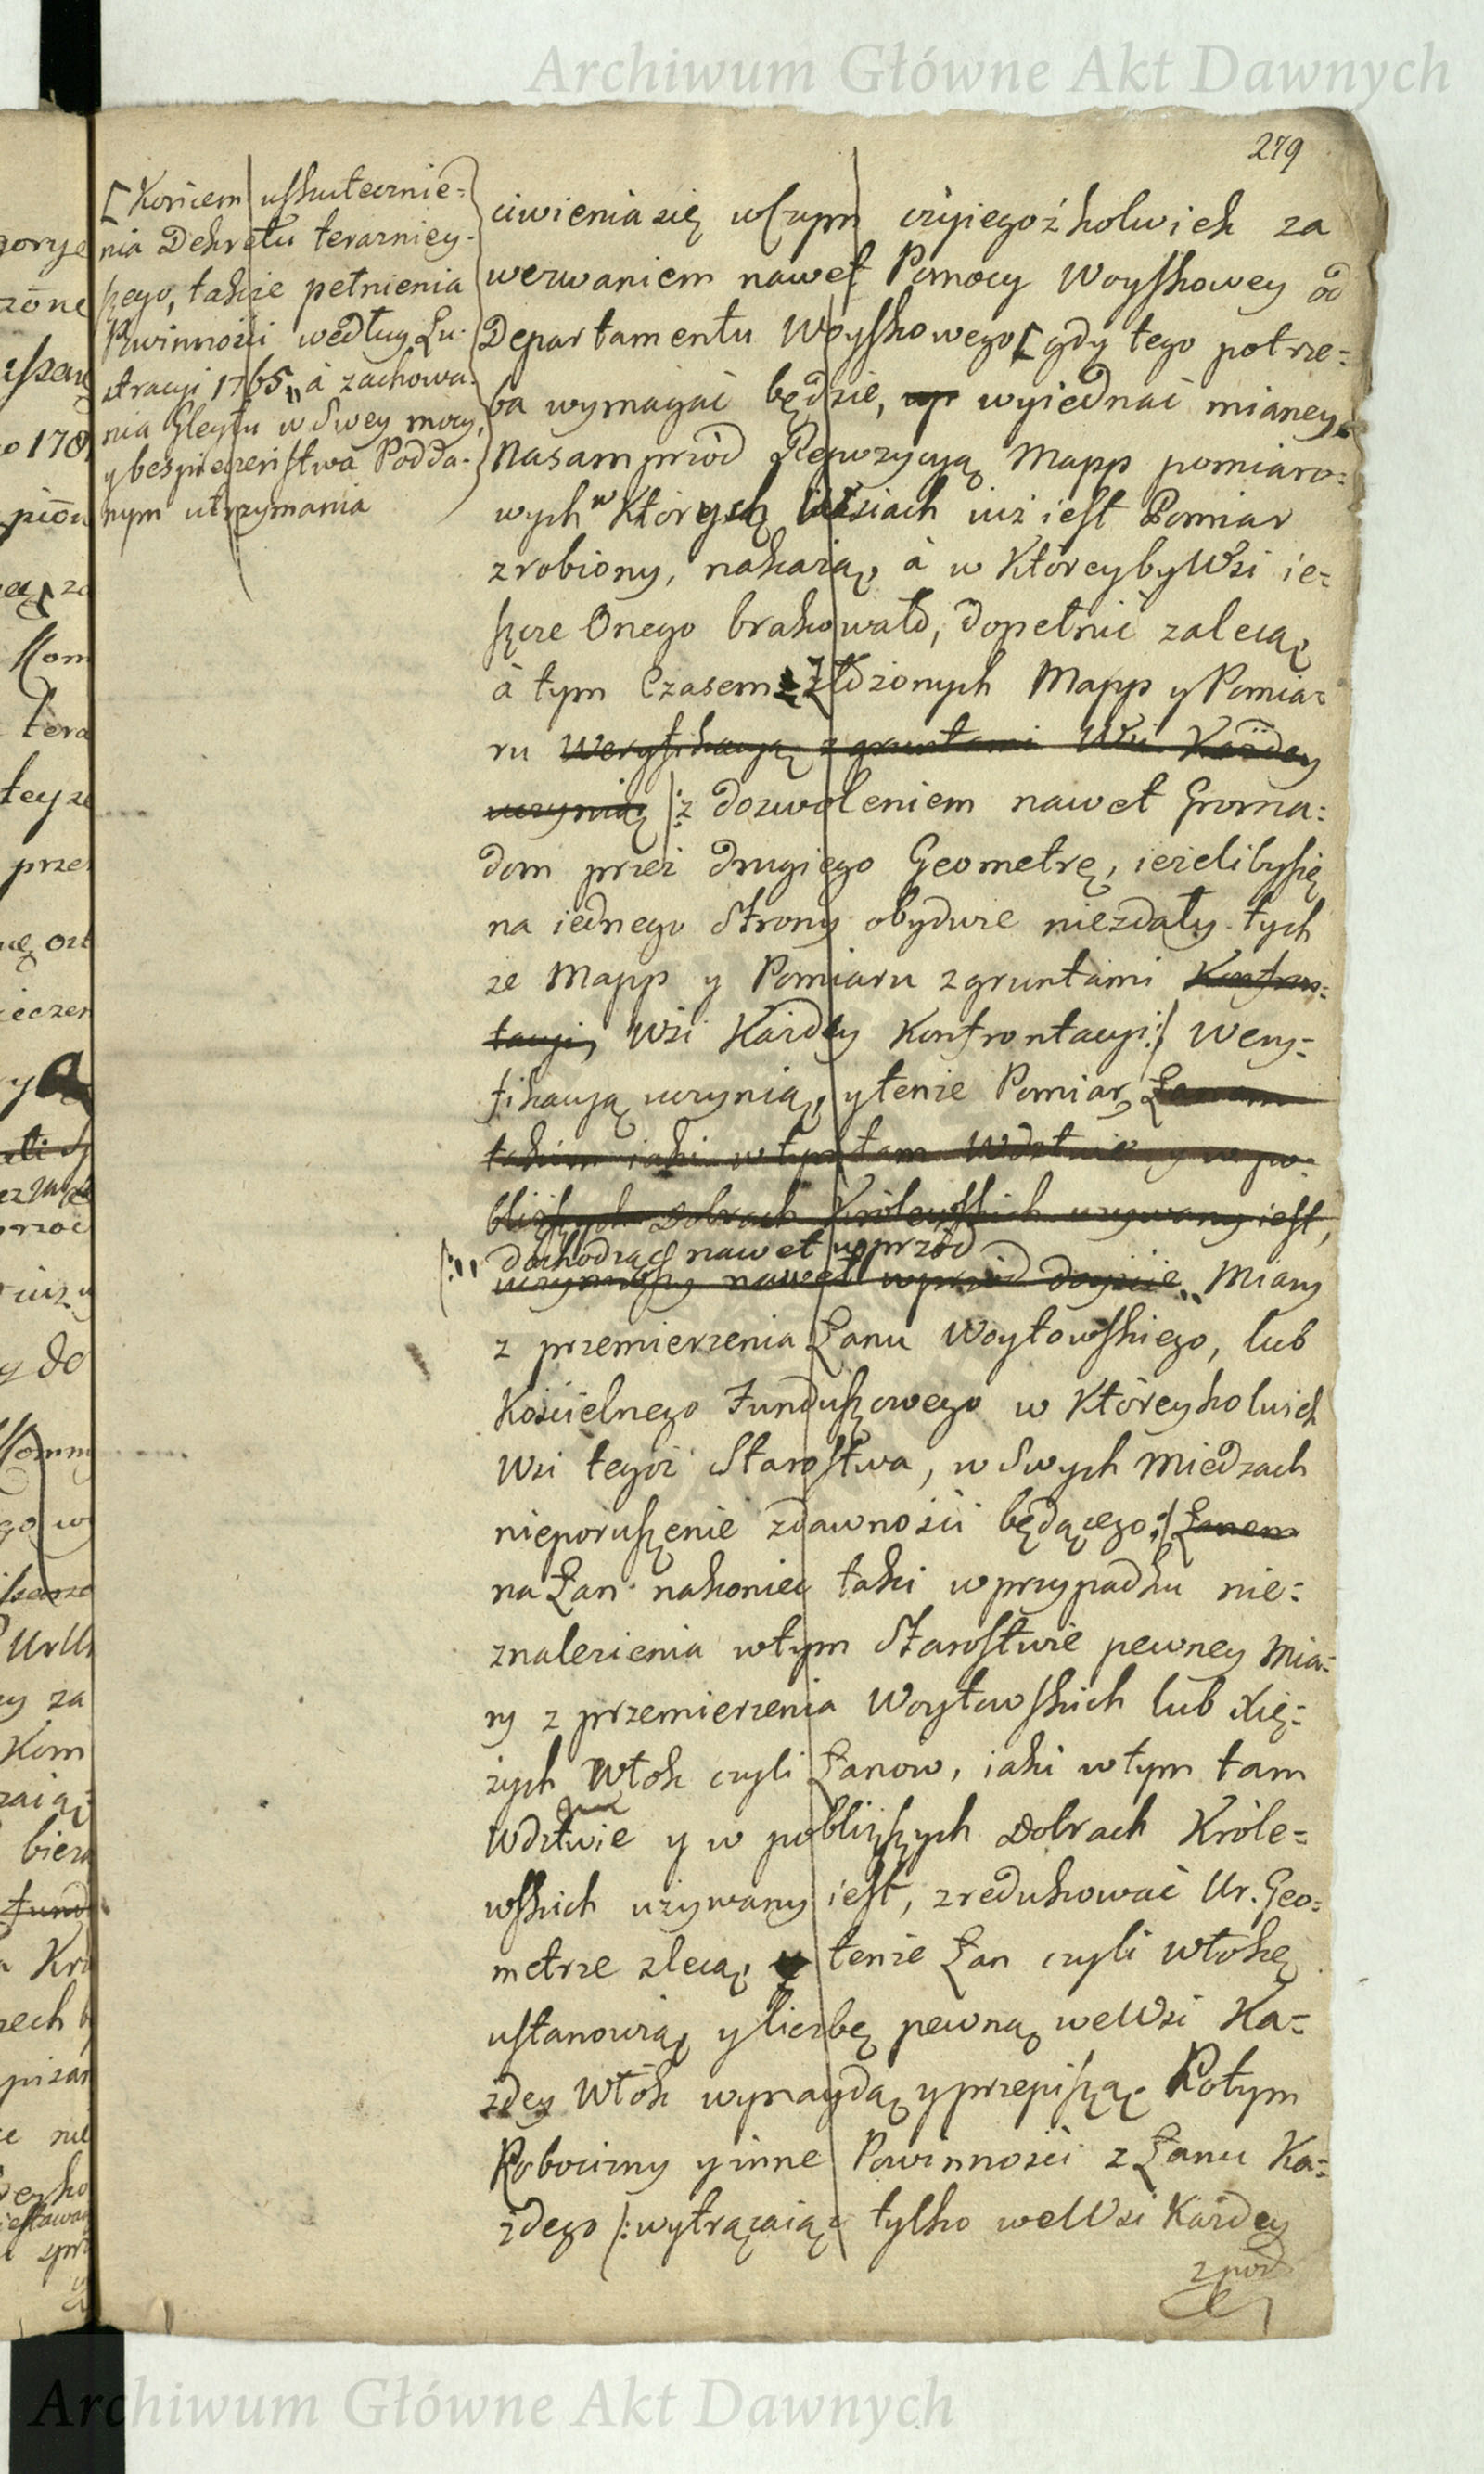 Archiwum Główne Akt Dawnych
279
[Końcem uskutecznie=
nia Dekretu teraźniey=
szego, także pełnienia
Pwinności według Lu=
stracyi 1765 „ à zachowa=
nia Gleytu w Swey mocy,
y bespieczeństwa Podda=
nym utrzymania
ciwienia się wczym czyiegoźkolwiek za
wezwaniem nawet Pomocy Woyskowey od
Departamentu Woyskowego [gdy tego potrze=
ba wymagać będzie, up wyiednać mianey.
Nasamprzód Repozycyą Mapp pomiaro=
wych w Których Wsiach iuż iest Pomiar
zrobiony, nakażą, à w KtóreybyWsi ie=
szcze Onego brakowało, dopełnić zalecą,
à tym Czasem Złożonych Mapp y Pomia=
ru Weryfikacyą z gruntami Wsi Każdey
uczynią /: z dozwoleniem nawet Groma=
dom przez drugiego Geometrę, ieżelibysię
na iednego Strony obydwie niezdały tych
że Mapp y Pomiaru zgruntami Konfron=
tacyi, Wsi Każdey Konfrontacyi :/ Wery=
fikacyą uczynią, ytenże Pomiar Łanem
takim iaki wtym tam Wdztwie y w po=
bliższych Dobrach Królewskich używany iest,
/: „ dochodząc nawet wprzód
uczyniwszy nawet wprzód doyście „ Miary
z przemierzenia Łanu Woytowskiego, lub
Kościelnego Funduszowego w Któreykolwiek
Wsi tegoż Starostwa, w Swych Miedzach
nieporuszenie zdawności będącego :/ Łanem
na Łan nakoniec taki wprzypadku nie=
znalezienia wtym Starostwie pewney Mia=
ry z przemierzenia Woytowskich lub Xię=
żych Włók czyli Łanow, iaki wtym tam
Wdztwie y w pobliższych Dobrach Króle=
wskich używany iest, zredukować Ur. Geo=
metrze zlecą, y tenże Łan czyli Włokę
ustanowią, yliczbę pewną weWsi Ka=
żdey Włók wynaydą, yprzepiszą. Potym
Robocizny yinne Powinności z Łanu Ka=
żdego /: wytrącaiąc tylko weWsi Każdey
z pod
Archiwum Główne Akt Dawnych